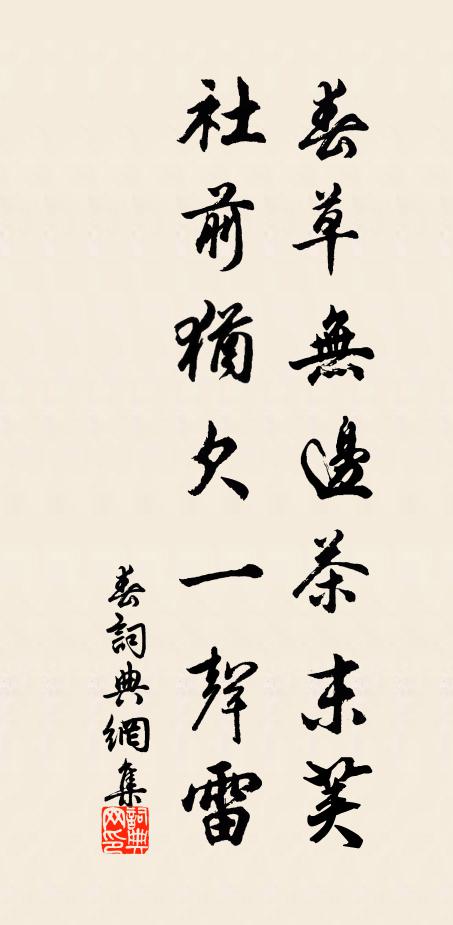 春草無邊茶未美
社前猶欠一聲雷
春詞典網集
詞典
网印